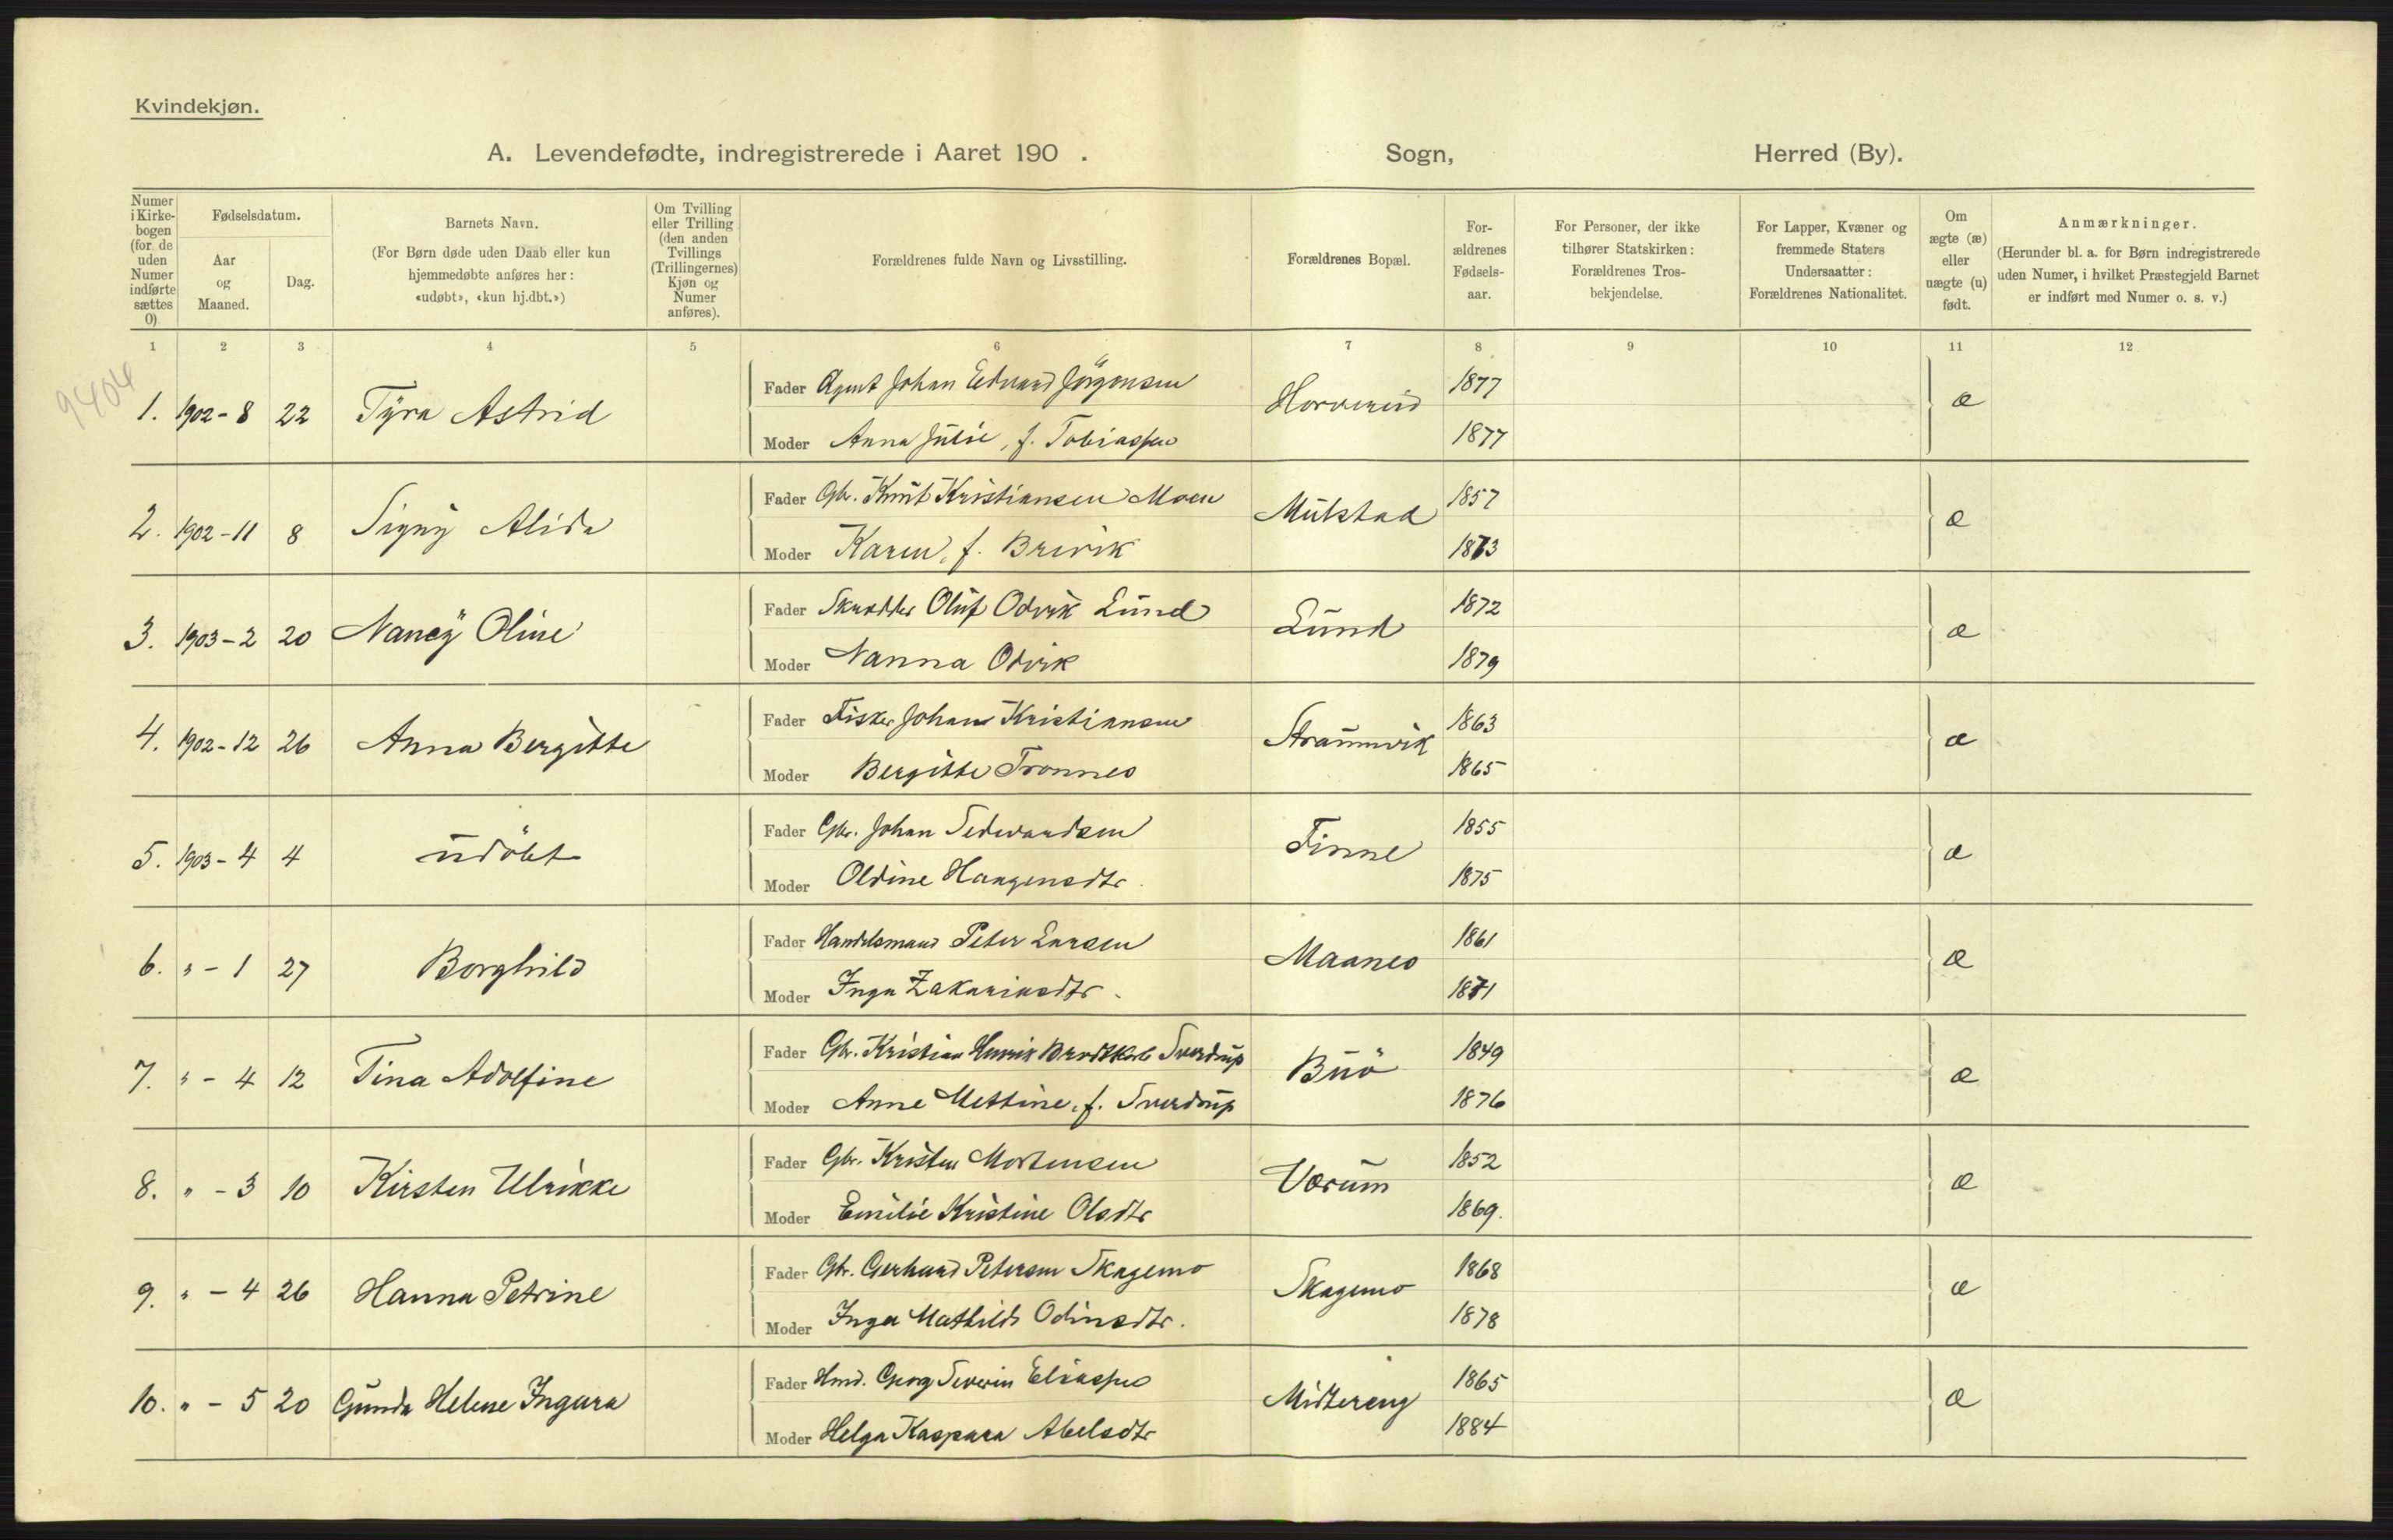 Kvindekjøn.
A. Levendefødte, indregistrerede i Aaret 190 . Sogn, Herred (By).
Numer i Kirke-bogen (for de uden Numer indførte sættes 0)
Fødselsdatum.
Aar og Maaned.
Dag.
Barnets Navn.
(For Børn døde uden Daab eller kun hjemmedøbte anføres her: «udøbt», «kun hj.dbt.»)
Om Tvilling eller Trilling (den anden Tvillings (Trillingernes) Kjøn og Numer anføres).
Forældrenes fulde Navn og Livsstilling.
Forældrenes Bopæl.
For-ældrenes Fødsels-aar.
For Personer, der ikke tilhører Statskirken: Forældrenes Tros-bekjendelse.
For Lapper, Kvæner og fremmede Staters Undersaatter: Forældrenes Nationalitet.
Om ægte (æ) eller uægte (u) født.
Anmærkninger.
(Herunder bl. a. for Børn indregistrerede uden Numer, i hvilket Præstegjeld Barnet er indført med Numer o. s. v.)
1 2 3 4 5 6 7 8 9 10 11 12
9404
Fader Agent Johan Edvard Jörgensen 1877
1. 1902-8 22 Tyra Astrid Horvereid æ
Moder Anna Julie, f. Tobiassen 1877
Fader Gbr. Knut Kristiansen Moen 1857
2. 1902-11 8 Signy Alida Mulstad æ
Moder Karen, f. Brevik 1873
Fader Skrædder Oluf Odvik Lund 1872
3. 1903-2 20 Nancy Oline Lund æ
Moder Nanna Odvik 1879
Fader Fisker Johan Kristiansen 1863
4. 1902-12 26 Anna Bergitte Straumvik æ
Moder Bergitte Tronnes 1865
Fader Gbr. Johan Sedevardsen 1855
5. 1903-4 4 udöbt Finne æ
Moder Oldine Haagensdtr. 1875
Fader Handelsmand Peter Larsen 1861
6. " - 1 27 Borghild Maanes æ
Moder Inga Zakariasdtr. 1871
Fader Gbr. Kristian Henrik Sverdrup 1849
7. " - 4 12 Tina Adolfine Buö æ
Moder Anne Mettine, f. Sverdrup 1876
Fader Gbr. Kristen Mortensen 1852
8. " - 3 10 Kirsten Ulrikke Værum æ
Moder Emilie Kristine Olsdtr 1869.
Fader Gbr. Gerhard Petersen Skagemo 1868
9. " - 4 26 Hanna Petrine Skagemo æ
Moder Inga Mathilde Odinsdtr. 1878
Fader Hmd. Georg Severin Eliassen 1865
10. " - 5 20 Gunda Helene Ingara Midtereng æ
Moder Helga Kaspara Abelsdtr 1884